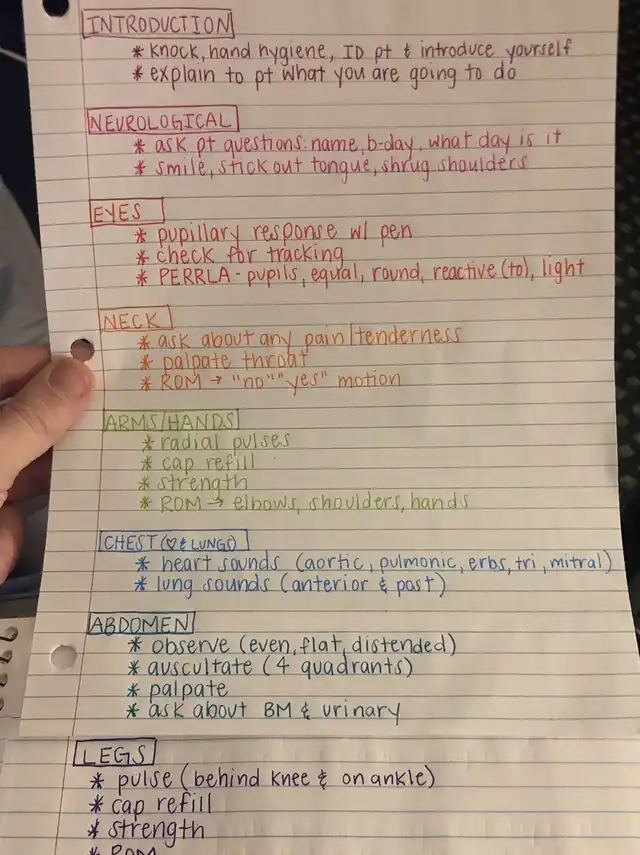 INTRODUCTION
* Knock, hand hygiene, ID pt & introduce yourself
* explain to pt what you are going to do
NEUROLOGICAL
* ask pt questions: name, b-day, what day is it
* smile, stick out tongue, shrug shoulders
EYES
* pupillary response w/ pen
* check for tracking
* PERRLA - pupils, equal, round, reactive (to), light
NECK
* ask about any pain/tenderness
* palpate throat
* ROM → "no" "yes" motion
ARMS/HANDS
* radial pulses
* cap refill
* strength
* ROM → elbows, shoulders, hands
CHEST (♡ & LUNGS)
* heart sounds (aortic, pulmonic, erbs, tri, mitral)
* lung sounds (anterior & post)
ABDOMEN
* observe (even, flat, distended)
* auscultate (4 quadrants)
* palpate
* ask about BM & urinary
LEGS
* pulse (behind knee & on ankle)
* cap refill
* strength
* ROM